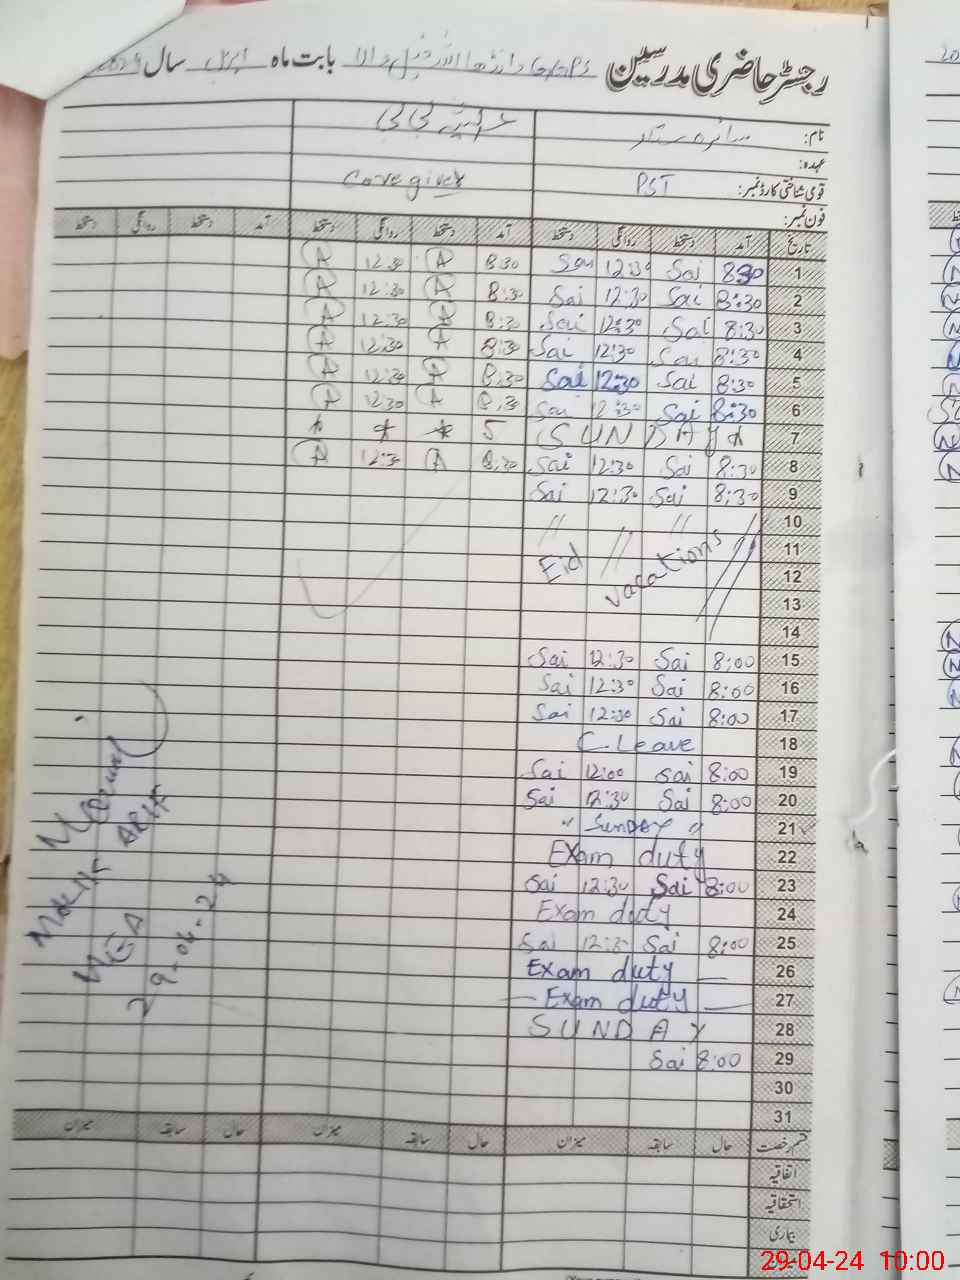 رجسٹر حاضری مدرسین بابت ماہ اپریل سال 2024
نام: سائرہ ستار
عہدہ:
قومی شناختی کارڈ نمبر: PST Care giver
فون نمبر:
تاریخ آمد دستخط روانگی دستخط آمد دستخط روانگی دستخط آمد دستخط روانگی دستخط
1 8:30 Sai 12:30 Sai 8:30 A 12:30 A
2 8:30 Sai 12:30 Sai 8:30 A 12:30 A
3 8:30 Sai 12:30 Sai 8:30 A 12:30 A
4 8:30 Sai 12:30 Sai 8:30 A 12:30 A
5 8:30 Sai 12:30 Sai 8:30 A 12:30 A
6 8:30 Sai 12:30 Sai 8:30 A 12:30 A
7 SUNDAY S
8 8:30 Sai 12:30 Sai 8:30 A 12:30 A
9 8:30 Sai 12:30 Sai
10 // // // //
11 Eid vacations
12
13
14
15 8:00 Sai 12:30 Sai
16 8:00 Sai 12:30 Sai
17 8:00 Sai 12:30 Sai
18 C.Leave
19 8:00 Sai 12:00 Sai
20 8:00 Sai 12:30 Sai
21 " Sunday "
22 Exam duty
23 8:00 Sai 12:30 Sai
24 Exam duty
25 8:00 Sai 12:30 Sai
26 Exam duty
27 Exam duty
28 SUNDAY
29 8:00 Sai
30
31
قسم رخصت حال سابقہ میزان حال سابقہ میزان حال سابقہ میزان
اتفاقیہ
استحقاقیہ
بیماری
MEA
29-04-24
29-04-24 10:00